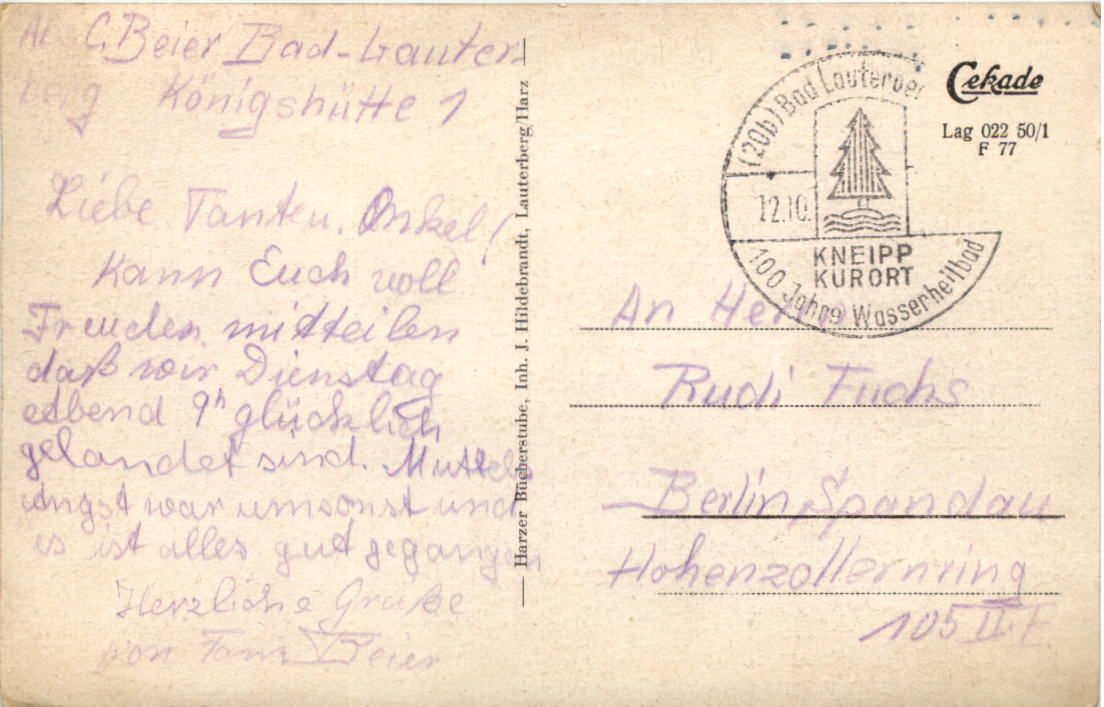 C. Beier Bad-Lauter-
berg Königshütte 1
Liebe Tante u. Onkel!
Kann Euch voll
Freuden mitteilen
daß wir Dienstag
abend 9h glücklich
gelandet sind. Muttels
Angst war umsonst und
es ist alles gut gegangen
Herzliche Grüße
von Fam. Beier
— Harzer Bücherstube, Inh. J. Hildebrandt, Lauterberg/Harz —
(20b) Bad Lauterber
12.10.
KNEIPP
KURORT
100 Jahre Wasserheilbad
Cekade
Lag 022 50/1
F 77
An Herrn
Rudi Fuchs
Berlin, Spandau
Hohenzollernring
105 II.